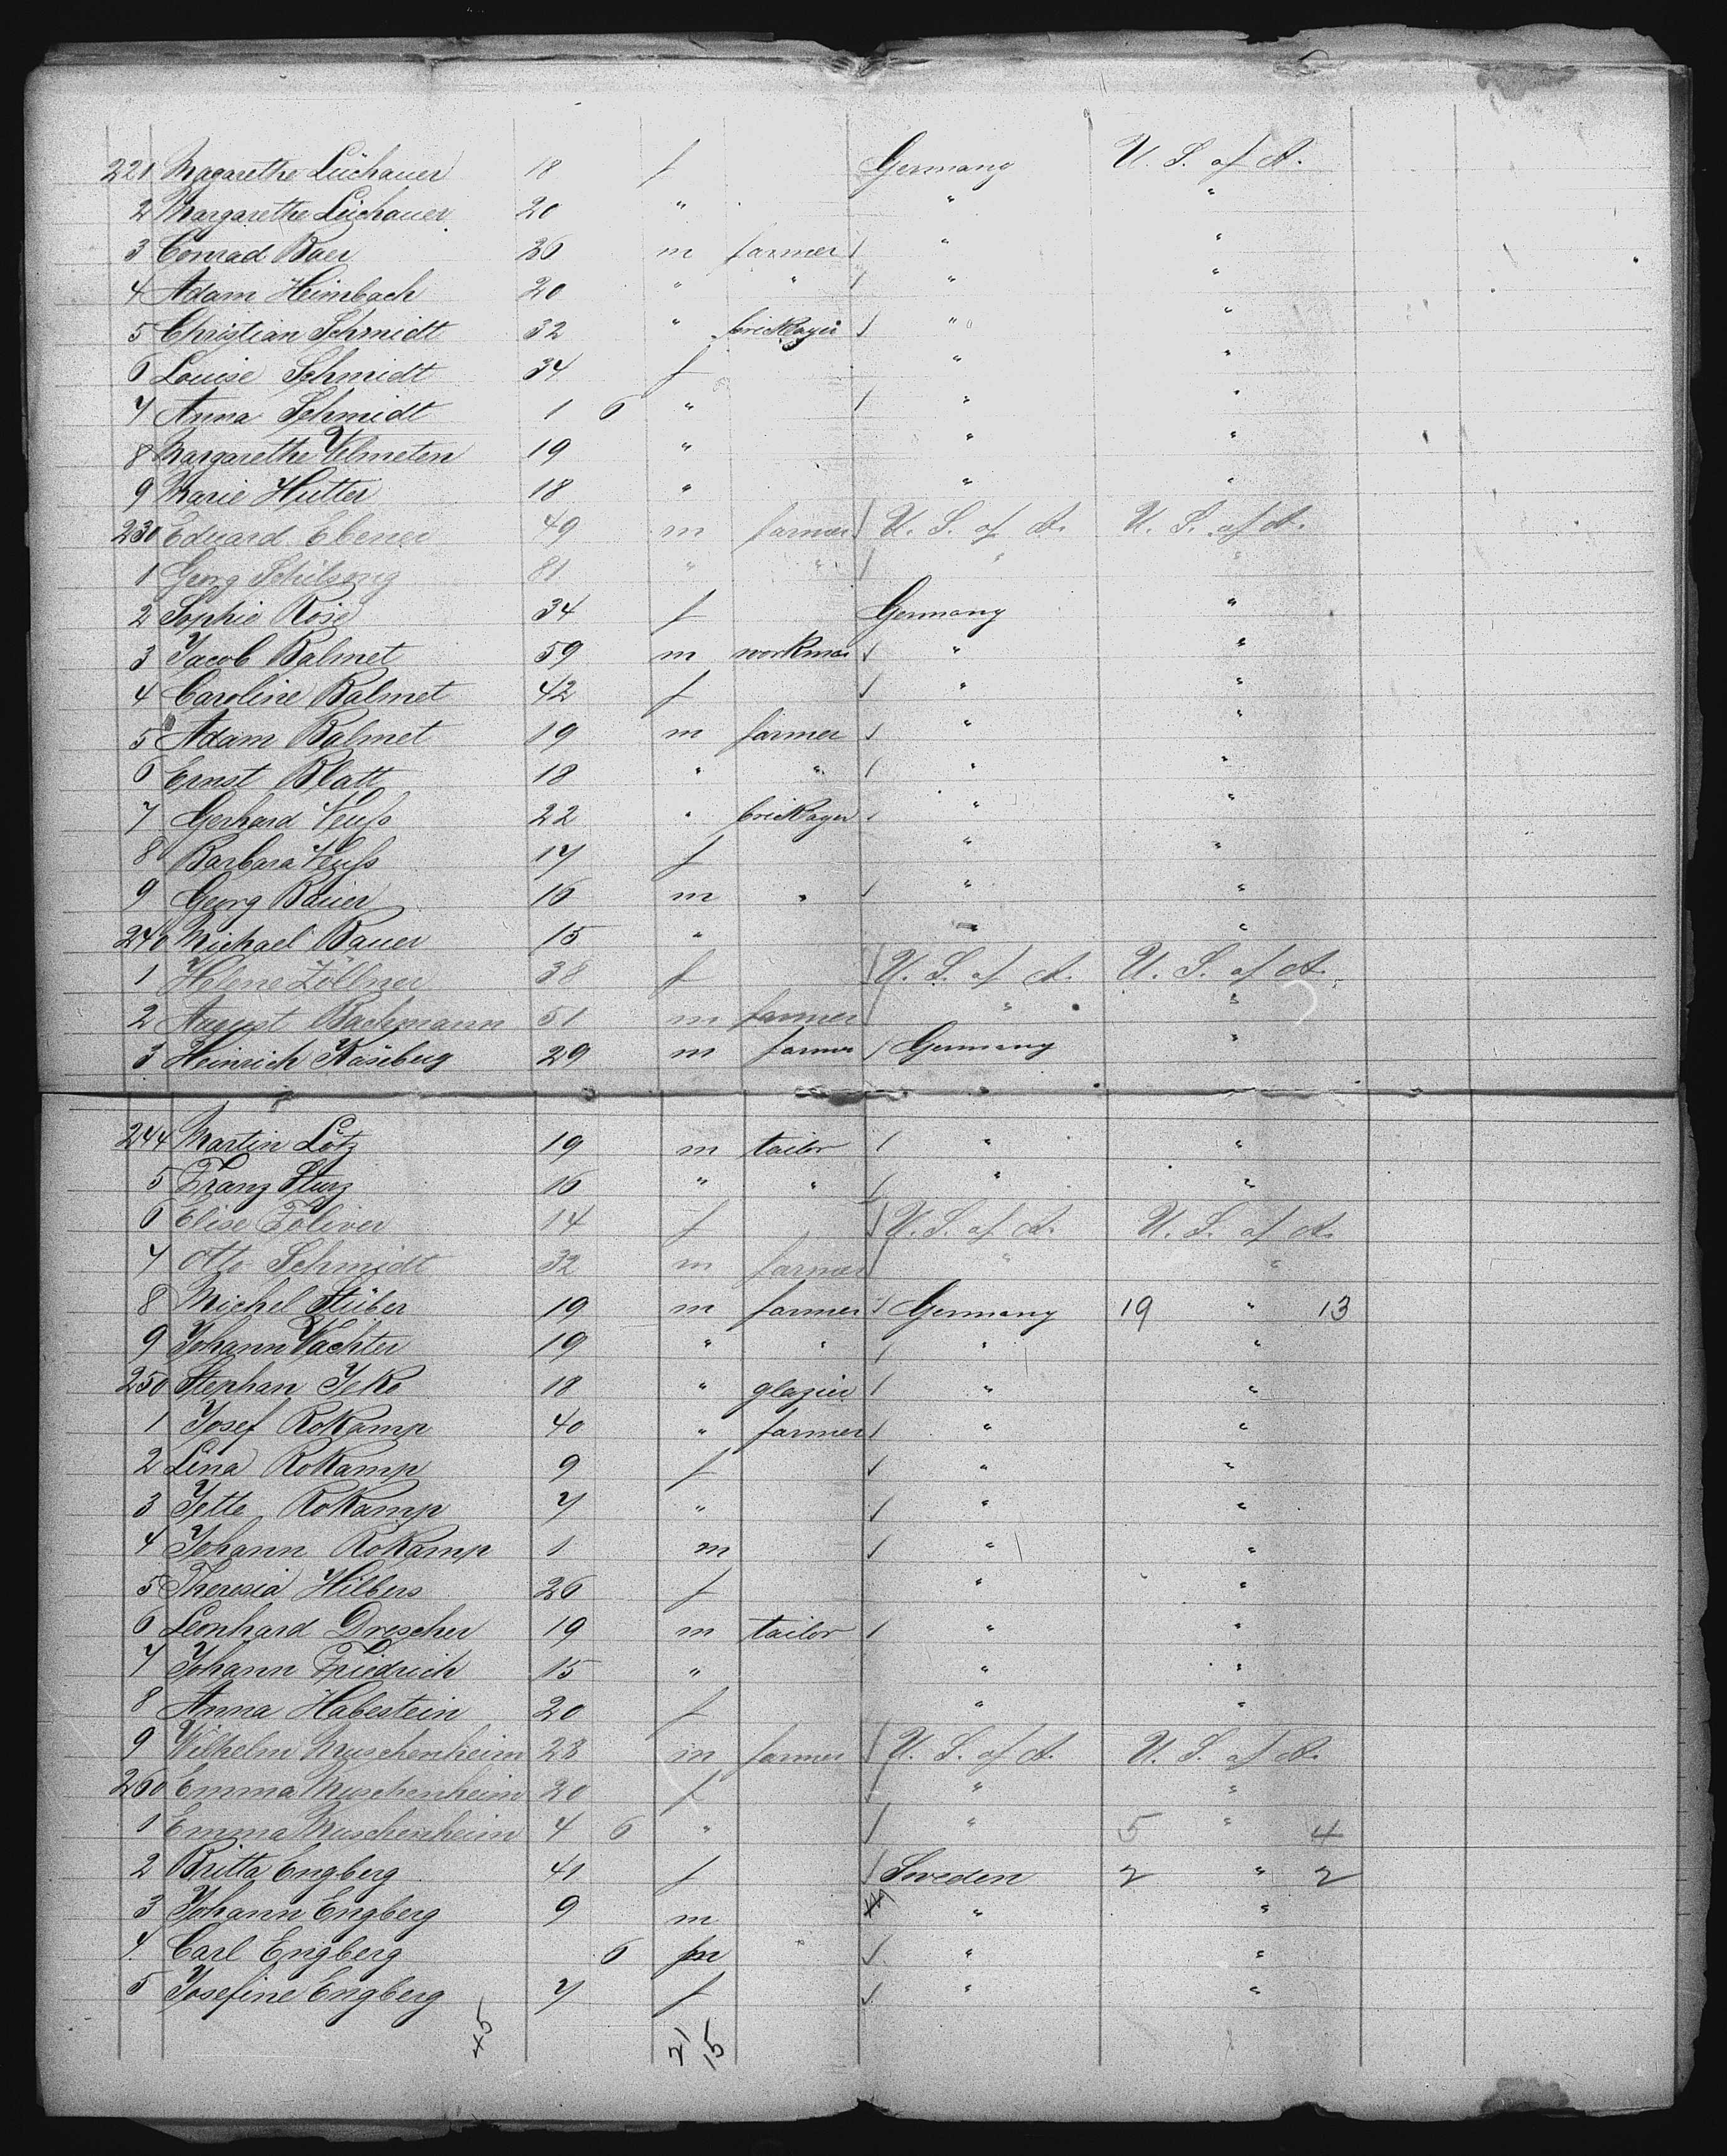 221 Magarethe Lüchauer 18 f Germany U. S. of A.
2 Margarethe Lüchauer 20 " " "
3 Conrad Baer 26 m farmer / " "
4 Adam Heimbach 20 " " / " "
5 Christian Schmidt 32 " bricklayer / " "
6 Louise Schmidt 34 f " "
7 Anna Schmidt 1 6 " / " "
8 Margarethe Velmeten 19 " " "
9 Marie Hutter 18 " " "
230 Eduard Ebener 49 m farmer / U. S. of A. U. S. of A.
1 Georg 81 " " / " "
2 Sophie Rose 34 f Germany "
3 Jacob Balmet 59 m workman / " "
4 Caroline Balmet 42 f / " "
5 Adam Balmet 19 m farmer / " "
6 Ernst Blatt 18 " " / " "
7 Gerhard 22 " bricklayer / " "
8 Barbara 17 f " "
9 Georg Bauer 16 m " / " "
240 Michael Bauer 15 " " "
1 Helene Zöllner 38 f / U. S. of A. U. S. of A.
2 August Bachmann 51 m farmer / " "
3 Heinrich Käseberg 29 m farmer / Germany "
244 Martin Lötz 19 m tailor / " "
5 Franz Sturz 16 " " / " "
6 Elise Foliver 14 f / U. S. of A. U. S. of A.
7 Otto Schmidt 32 m farmer / " "
8 Michel Stüber 19 m farmer / Germany 19 " 13
9 Johann Wachter 19 " " / " "
250 Stephan Jeko 18 " glazier / " "
1 Josef Rokamp 40 " farmer / " "
2 Lina Rokamp 9 f / " "
3 Jette Rokamp 7 " / " "
4 Johann Rokamp 1 m / " "
5 Theresia Hilbers 26 f " "
6 Leonhard Drescher 19 m tailor / " "
7 Johann Friedrich 15 " " "
8 Anna Habestein 20 f " "
9 Wilhelm Muschenheim 28 m farmer / U. S. of A. U. S. of A.
260 Emma Muschenheim 20 f / " "
1 Emma Muschenheim 4 6 " / " 5 " 4
2 Britta Engberg 41 f / Sweden 2 " 2
3 Johann Engberg 9 m " "
4 Carl Engberg 6 m / " "
5 Josefine Engberg 7 f / " "
45 21
15